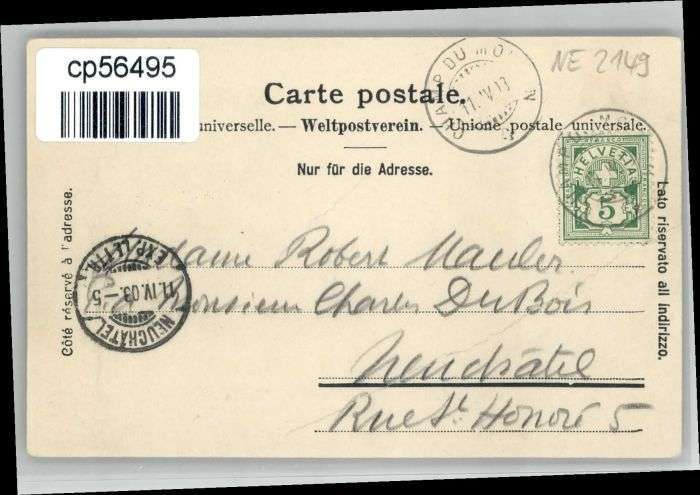 cp56495
NE 2149
CHAMP DU MOULIN
11.IV.03
Carte postale.
universelle. — Weltpostverein. — Unione postale universale.
Nur für die Adresse.
HELVETIA
FRANCO
5
Côté réservé à l'adresse.
Lato riservato all indirizzo.
NEUCHÂTEL
EXP. LETTR.
11.IV.03.—5
Madame Robert Mauler
Monsieur Charles DuBois
Neuchâtel
Rue St Honoré 5